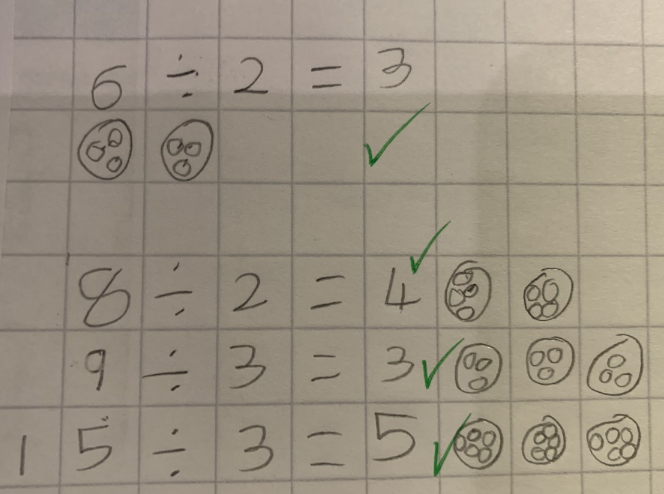 6 ÷ 2 = 3
8 ÷ 2 = 4
9 ÷ 3 = 3
15 ÷ 3 = 5